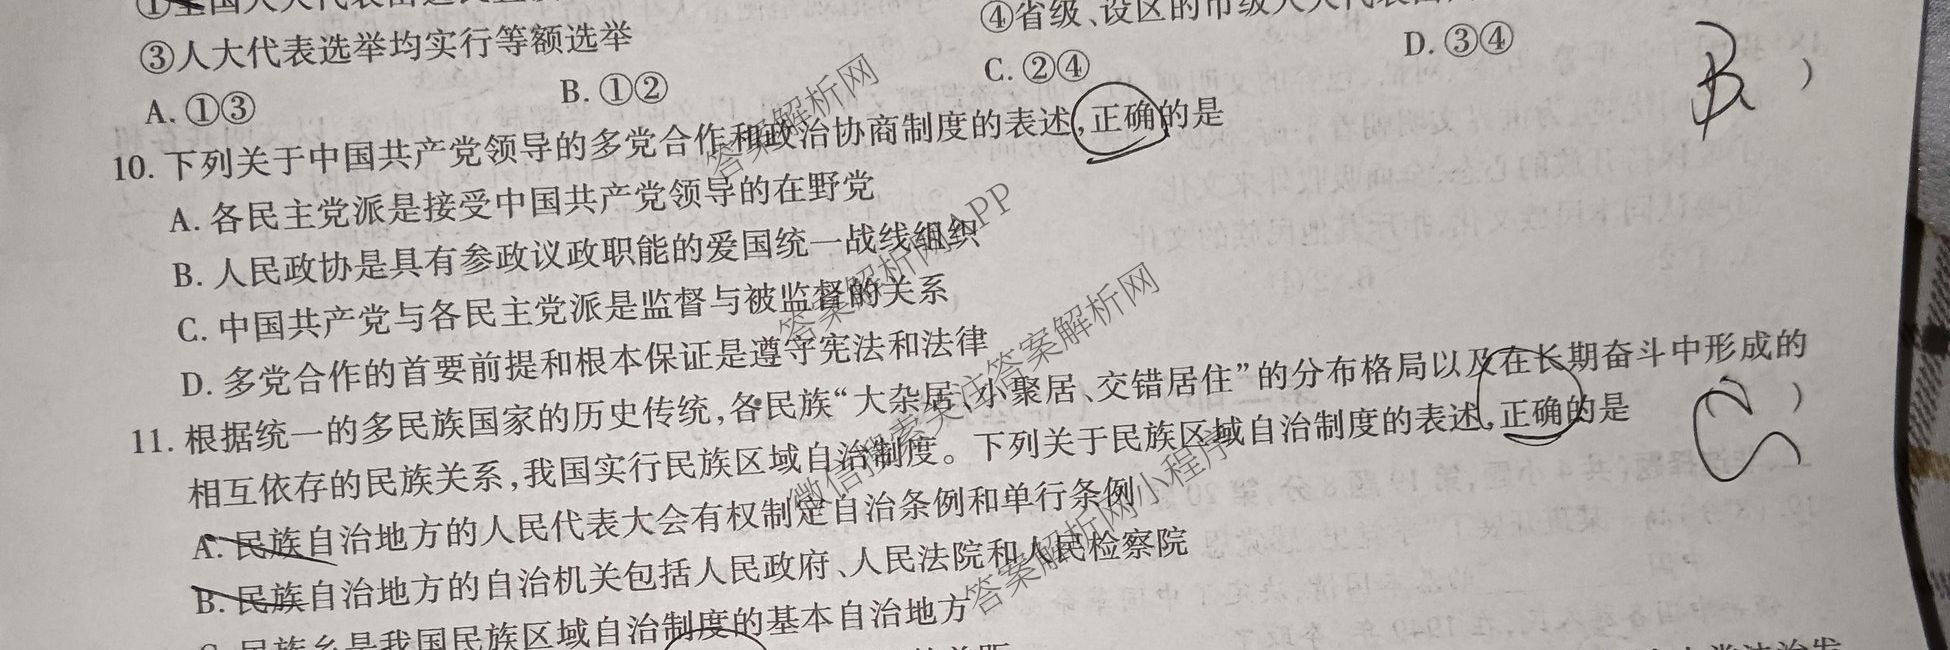 ①全国人大代表由选民直接
④省级、设区的市级人大代表由
③人大代表选举均实行等额选举
A. ①③ B. ①② C. ②④ D. ③④
10. 下列关于中国共产党领导的多党合作和政治协商制度的表述,正确的是 B )
A. 各民主党派是接受中国共产党领导的在野党
B. 人民政协是具有参政议政职能的爱国统一战线组织
C. 中国共产党与各民主党派是监督与被监督的关系
D. 多党合作的首要前提和根本保证是遵守宪法和法律
11. 根据统一的多民族国家的历史传统,各民族“大杂居、小聚居、交错居住”的分布格局以及在长期奋斗中形成的
相互依存的民族关系,我国实行民族区域自治制度。下列关于民族区域自治制度的表述,正确的是 )
A. 民族自治地方的人民代表大会有权制定自治条例和单行条例
B. 民族自治地方的自治机关包括人民政府、人民法院和人民检察院
C. 民族乡是我国民族区域自治制度的基本自治地方
答案解析网
答案解析网APP
微信搜索关注答案解析网
答案解析网小程序